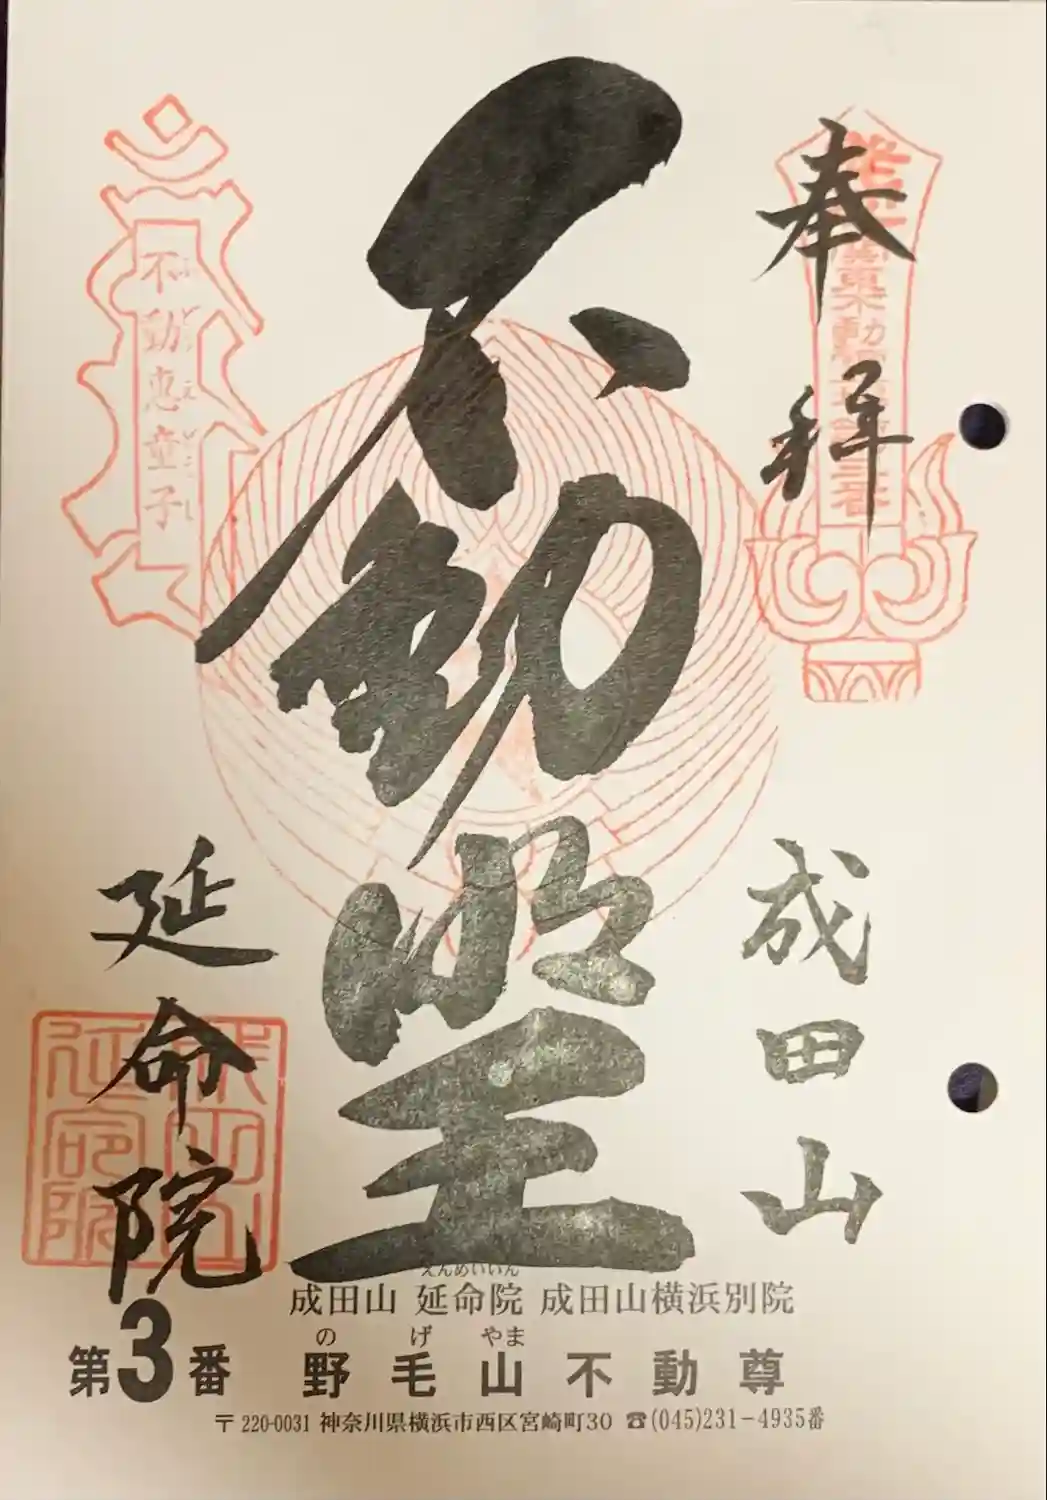 奉拝
成田山
不動堂
不動恵童子
延命院
えんめいいん
成田山 延命院 成田山横浜別院
の げ やま
第3番 野毛山不動尊
〒220-0031 神奈川県横浜市西区宮崎町30 ☎(045)231-4935番